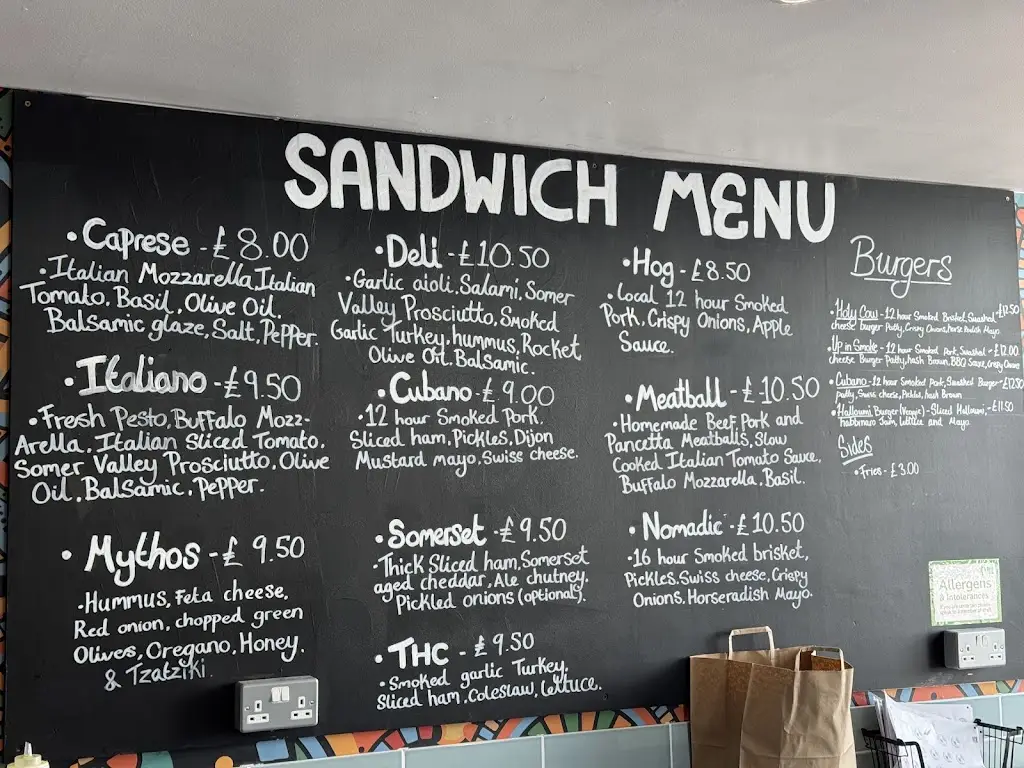 SANDWICH MENU
• Caprese - £8.00
• Italian Mozzarella, Italian
Tomato, Basil, Olive Oil,
Balsamic glaze, Salt, Pepper.
• Italiano - £9.50
• Fresh Pesto, Buffalo Mozz-
Arella, Italian Sliced Tomato,
Somer Valley Prosciutto, Olive
Oil, Balsamic, Pepper.
• Mythos - £ 9.50
• Hummus, Feta cheese,
Red onion, chopped green
Olives, Oregano, Honey.
& Tzatziki
• Deli - £10.50
• Garlic aioli, Salami, Somer
Valley Prosciutto, Smoked
Garlic Turkey, hummus, Rocket
Olive Oil, Balsamic.
• Cubano - £9.00
• 12 hour Smoked Pork,
Sliced ham, Pickles, Dijon
Mustard mayo, Swiss cheese.
• Somerset - £9.50
• Thick Sliced ham, Somerset
aged cheddar, Ale chutney,
Pickled onions (optional).
• THC - £9.50
• Smoked garlic Turkey,
Sliced ham, Coleslaw, lettuce.
• Hog - £8.50
• Local 12 hour Smoked
Pork, Crispy Onions, Apple
Sauce.
• Meatball - £10.50
• Homemade Beef, Pork and
Pancetta Meatballs, Slow
Cooked Italian Tomato Sauce,
Buffalo Mozzarella, Basil.
• Nomadic - £10.50
• 16 hour Smoked brisket,
Pickles, Swiss cheese, Crispy
Onions, Horseradish Mayo.
Burgers
• Holy Cow - 12 hour Smoked Brisket, Smashed - £12.50
cheese burger Patty, Crispy Onions, Horse Radish Mayo
• Up in Smoke - 12 hour Smoked Pork, Smashed - £12.00
Cheese Burger Patty, hash Brown, BBQ Sauce, Crispy Onions
• Cubano - 12 hour Smoked Pork, Smashed Burger - £12.50
patty, Swiss cheese, Pickles, hash Brown
• Halloumi Burger (Veggie) - Sliced Halloumi, - £11.50
habbinaro Jam, Lettuce and Mayo.
Sides
• Fries - £3.00
Allergens
& Intolerances